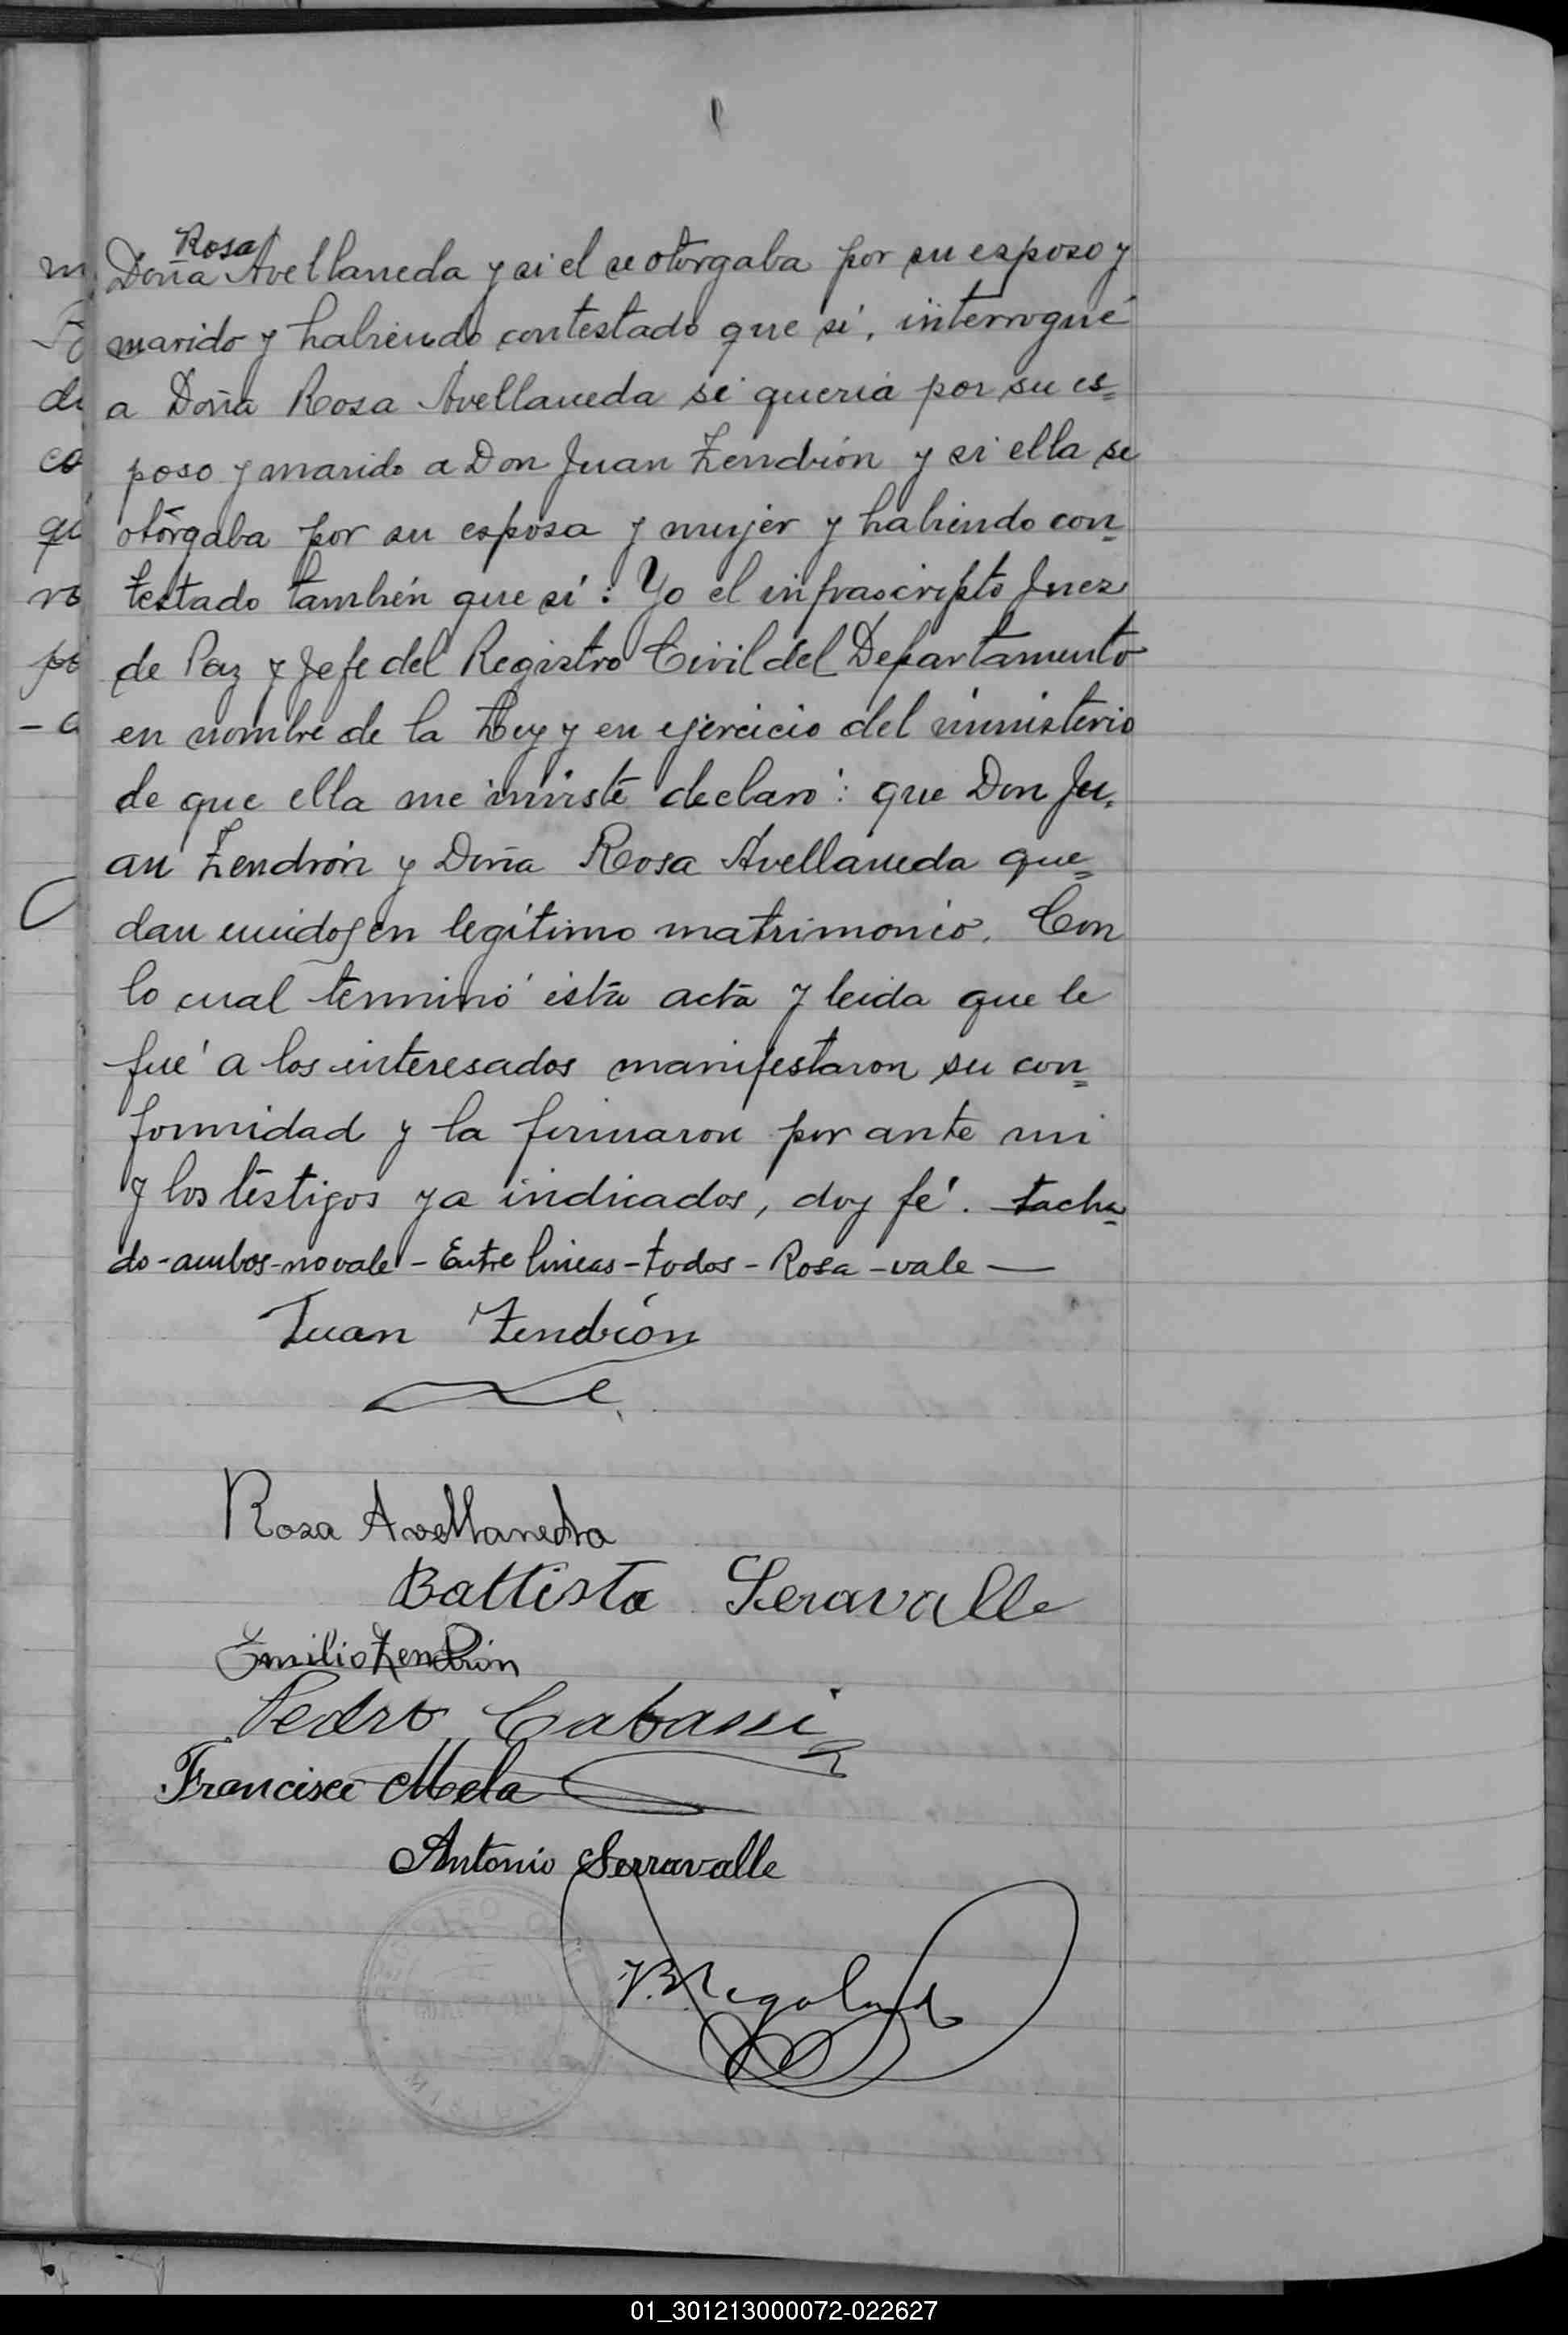 Rosa
Doña Avellaneda y si el se otorgaba por su esposo y
marido y habiendo contestado que sí, interrogué
a Doña Rosa Avellaneda si queria por su es=
poso y marido a Don Juan Zendrión y si ella se
otorgaba por su esposa y mujer y habiendo con=
testado también que sí: Yo el infrascripto Juez
de Paz y Jefe del Registro Civil del Departamento
en nombre de la Ley y en ejercicio del ministerio
de que ella me inviste declaro: que Don Ju=
an Zendrión y Doña Rosa Avellaneda que=
dan unidos en legítimo matrimonio. Con
lo cual terminó esta acta y leida que le
fué a los interesados manifestaron su con=
formidad y la firmaron por ante mi
y los testigos ya indicados, doy fé. tacha=
do-ambos-no vale-Entre lineas-todos-Rosa-vale—
Juan Zendrión
Rosa Avellaneda
Battista Seravalle
Emilio Zendrión
Pedro Cabassi
Francisco Mela
Antonio Serravalle
01_301213000072-022627